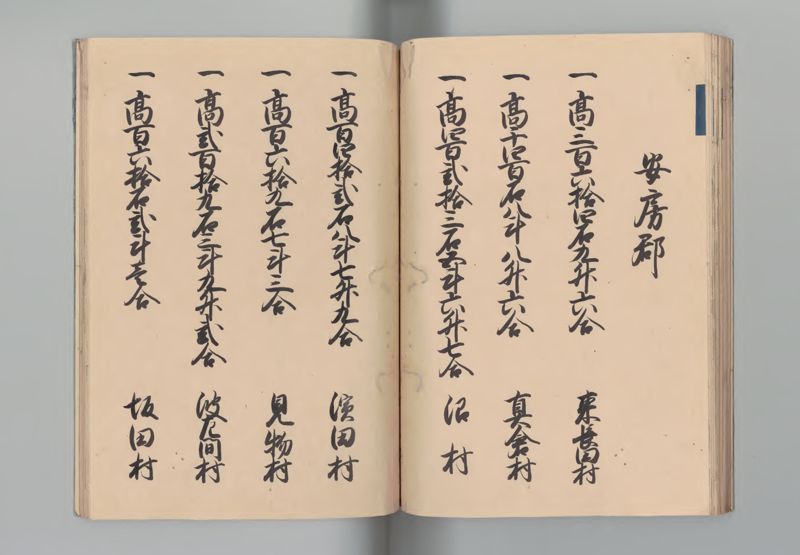 安房郡
一高三百六拾四石九升六合 東長田村
一高千四百石八斗八升六合 真倉村
一高四百弐拾三石五斗六升七合 沼村
一高百四拾弐石八斗七升九合 濱田村
一高百六拾九石七斗三合 見物村
一高弐百拾九石三斗九升弐合 波左間村
一高百六拾石弐斗壱合 坂田村